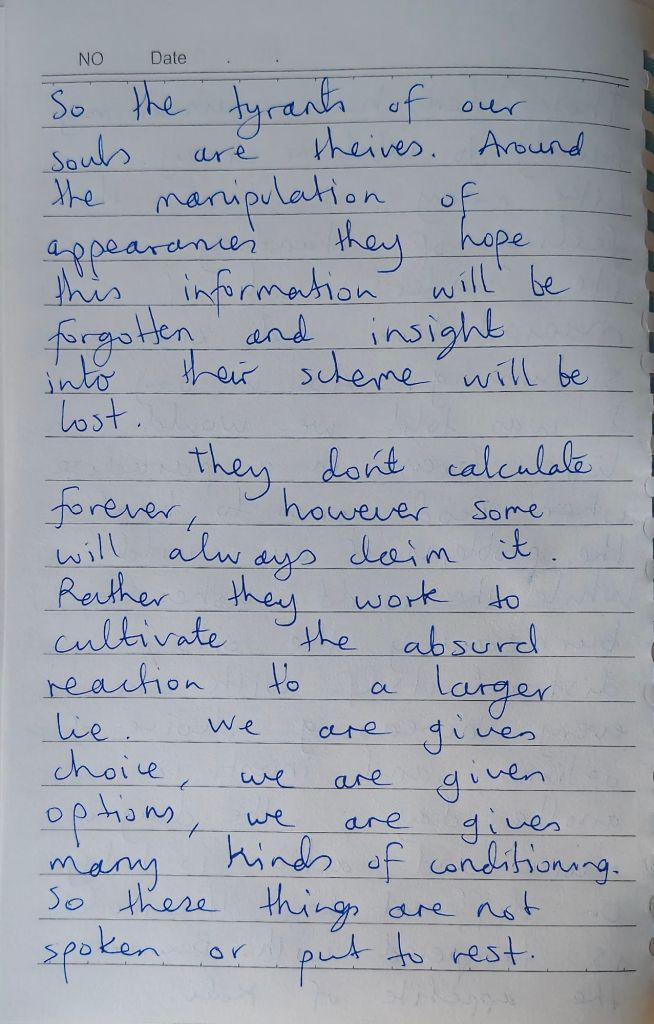 NO Date . .
So the tyrants of our
souls are theives. Around
the manipulation of
appearances they hope
this information will be
forgotten and insight
into their scheme will be
lost.
They don't calculate
forever, however some
will always claim it.
Rather they work to
cultivate the absurd
reaction to a larger
lie. We are given
choice, we are given
options, we are given
many kinds of conditioning.
So these things are not
spoken or put to rest.